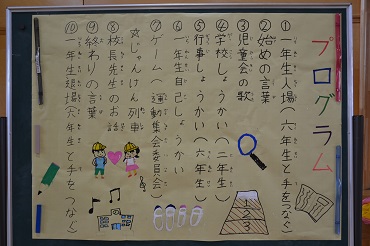 プログラム
①一年生入場(六年生と手をつなぐ)
②始めの言葉
③児童会の歌
④学校しょうかい(二年生)
⑤行事しょうかい(六年生)
⑥一年生自己しょうかい
⑦ゲーム(運動集会委員会)
貨じゃんけん列車
⑧校長先生のお話
⑨終わりの言葉
⑩一年生退場(六年生と手をつなぐ)
1
2
3